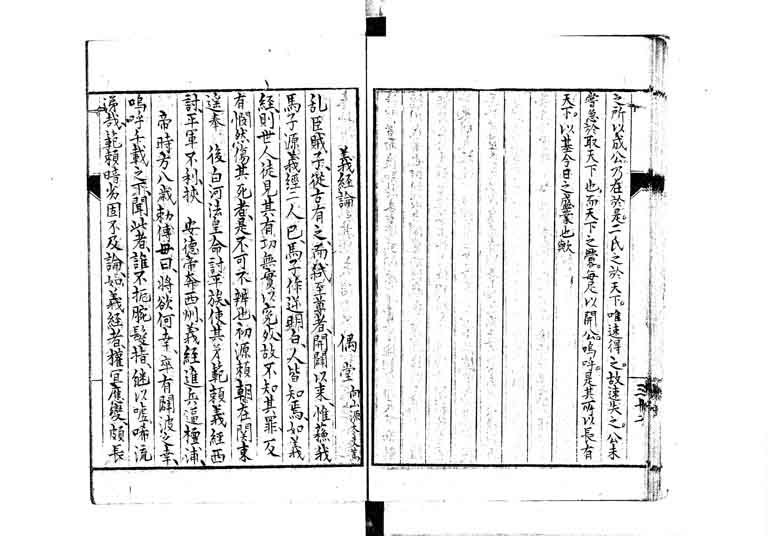 之所以成公乃在於是。二氏之於天下。唯速得之。故速失之。公未
嘗急於取天下也。而天下之釁。每足以開公。嗚呼。是其所以長有
天下。以基今日之盛業也歟
義經論
偶堂
亂臣賊子。從古有之。而弒至尊者。開闢以來。惟蘇我
馬子源義經二人已。馬子條逆明白。人皆知焉。如義
經則世人徒見其有功無實以寃死。故不知其罪。反
有憫然傷其死者。是不可不辨也。初源賴朝在關東
遙奉 後白河法皇命討平族。使其弟範賴義經西
討。平軍不利。挾 安德帝奔西州。義經進兵逼檀浦
帝時方八歲。勅傅母曰。將欲何幸。卒有闢波之幸
嗚呼。千載之下。聞此者。誰不扼腕髮指。繼以噓唏流
涕哉。範賴暗劣固不及論。如義經者。權宜應變頗長